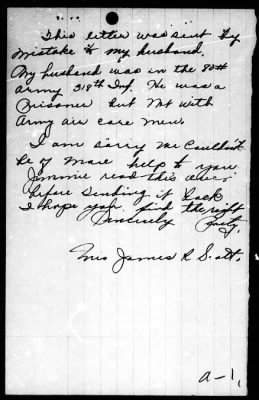 This letter was sent by
mistake to my husband.
My husband was in the 80th
Army 318th Inf. He was a
Prisoner but not with
Army air care men.
I am sorry we couldnt
be of more help to you
Jimmie read this over
before sending it back
I hope you find the right
Sincerely Party.
Mrs James R Scott.
A-1,